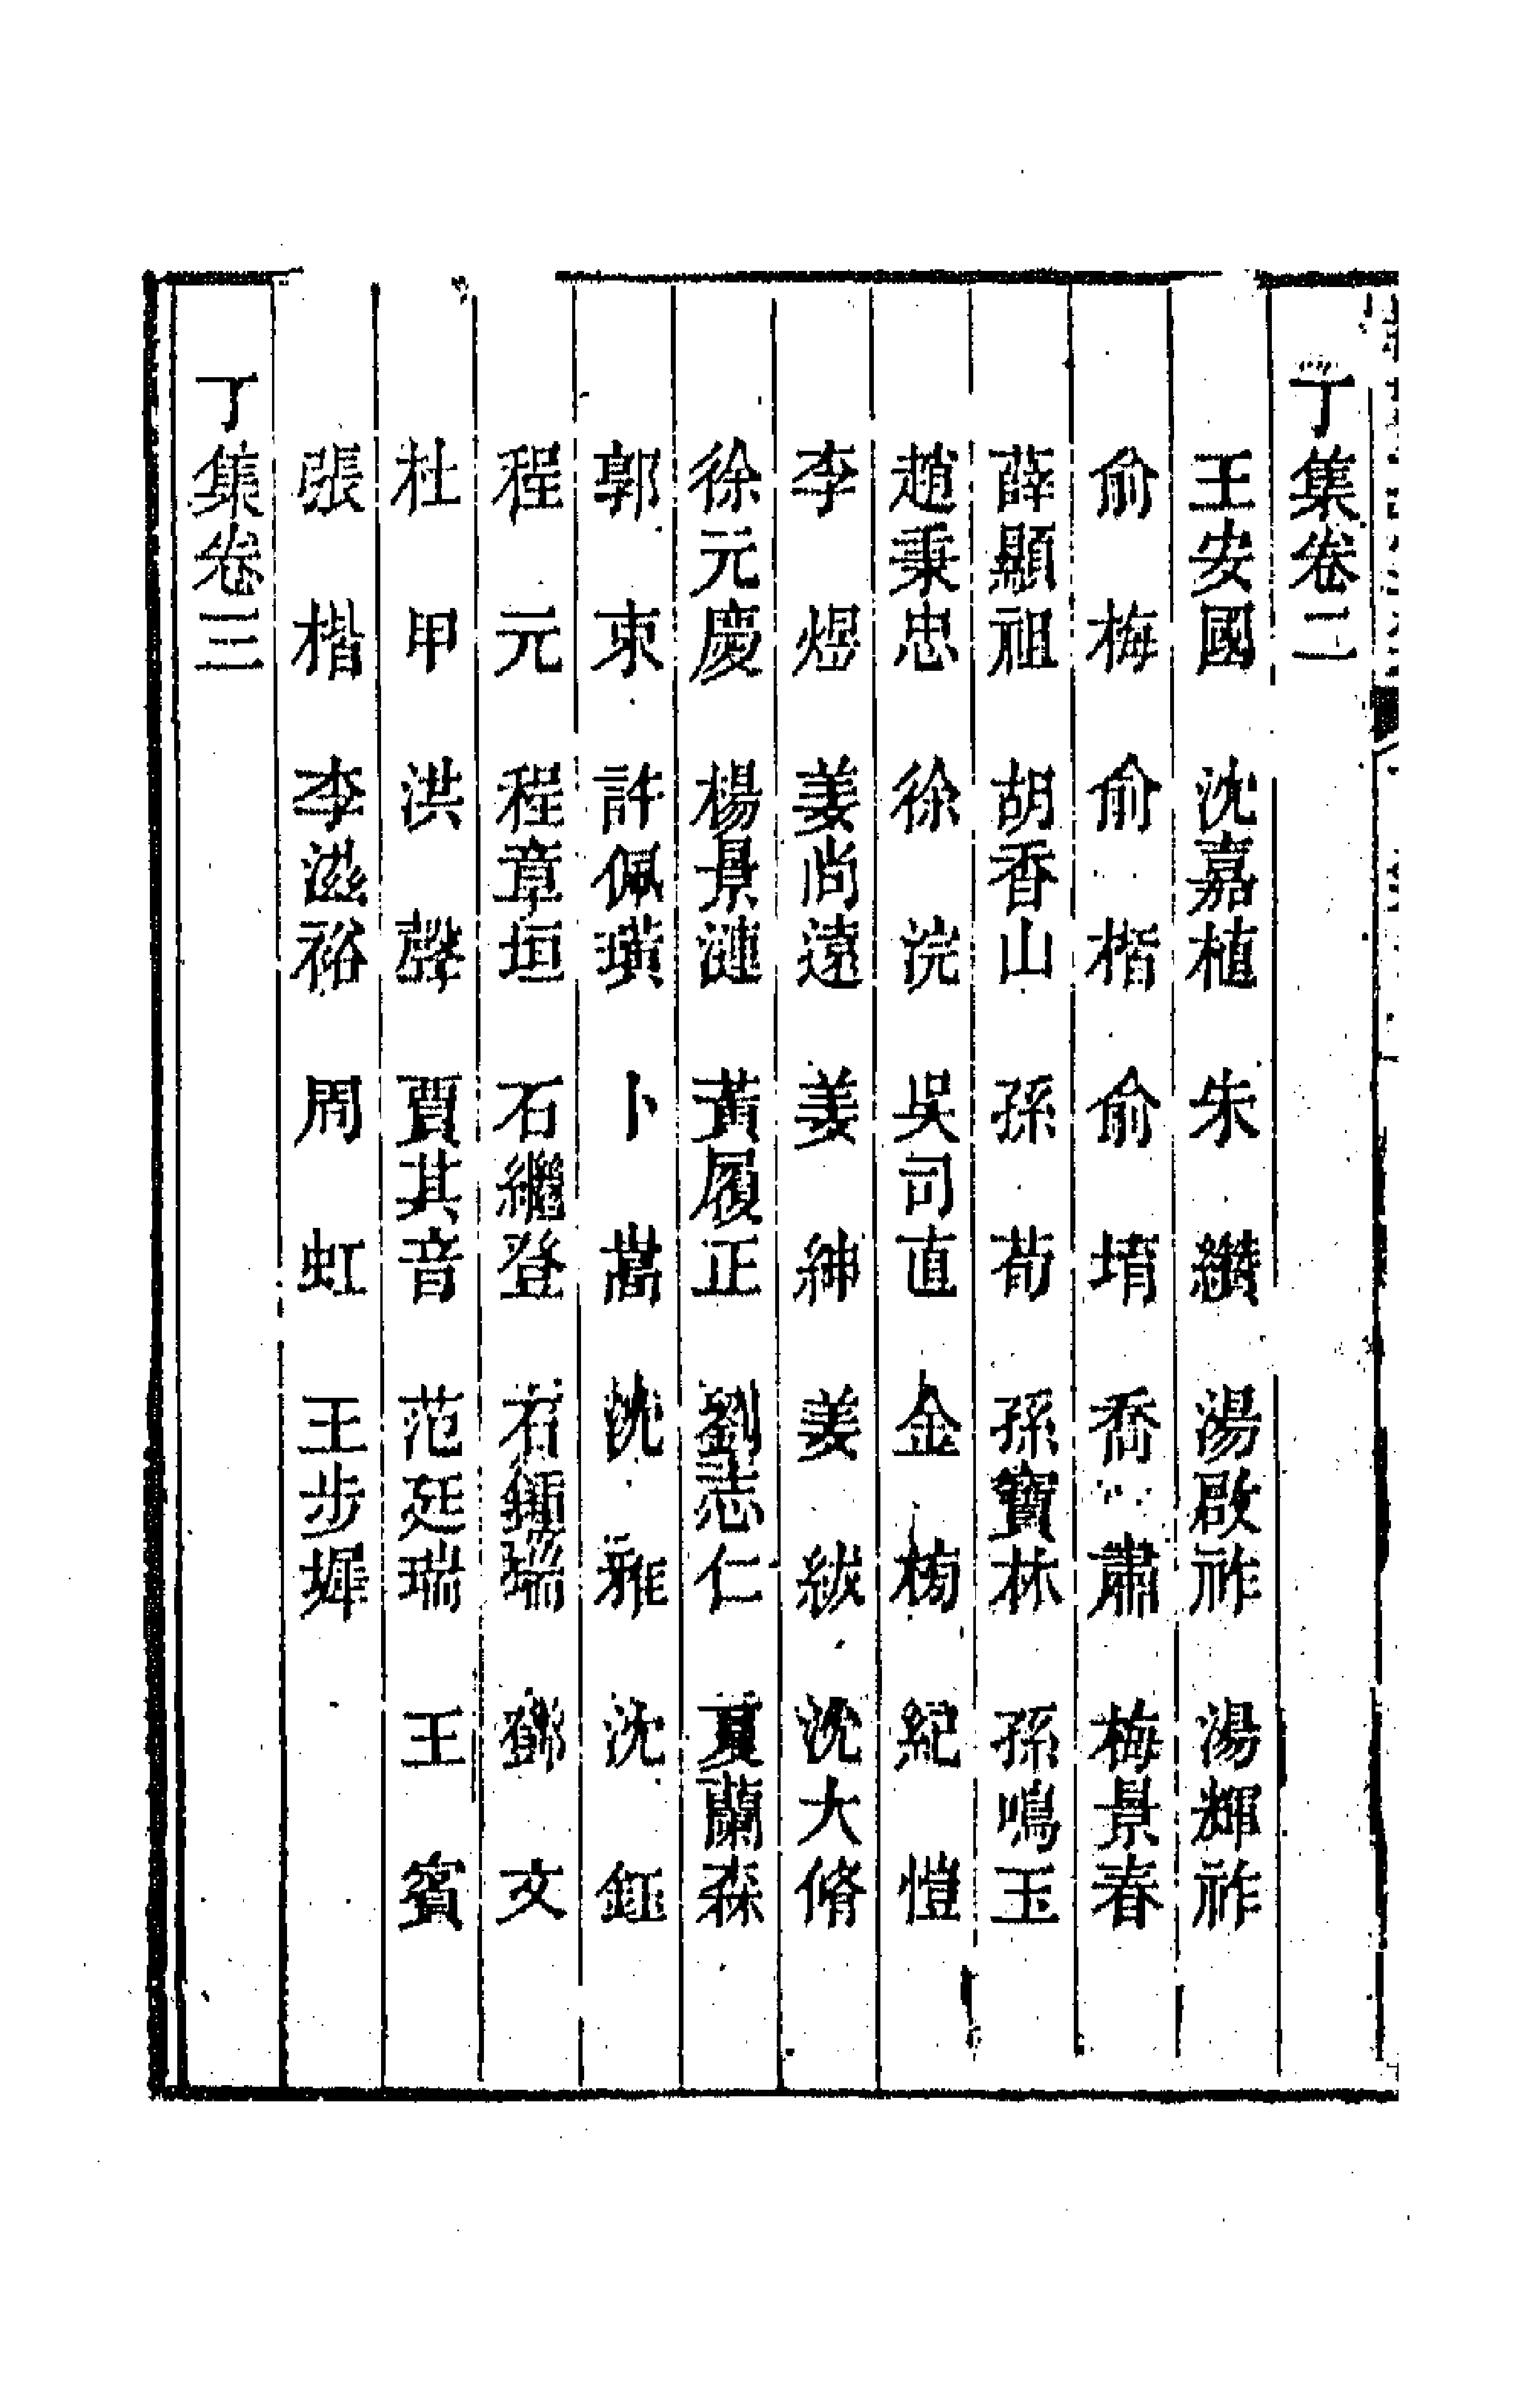 丁集卷二
王安國　沈嘉植　朱纘　湯啟祚　湯輝祚
俞梅　俞楷　俞堉　喬肅　梅景春
薛顯祖　胡香山　孫荀　孫寶林　孫鳴玉
趙秉忠　徐浣　吳司直　金梅　紀愷
李煜　姜尚遠　姜紳　姜紱　沈大脩
徐元慶　楊景漣　黃履正　劉志仁　夏蘭森
郭束　許佩璜　卜嵩　沈雅　沈鈺
程元　程章垣　石繼登　石瑞　鄧文
杜甲　洪聲　賈其音　范廷瑞　王賓
張楷　李滋裕　周虹　王步墀
丁集卷三